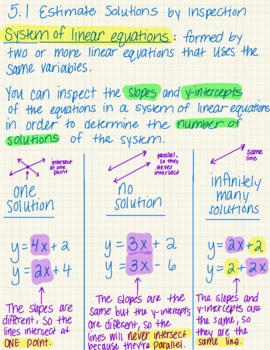 5.1 Estimate Solutions by Inspection
System of linear equations: formed by
two or more linear equations that uses the
same variables.
You can inspect the slopes and y-intercepts
of the equations in a system of linear equations
in order to determine the number of
solutions of the system.
intersect
at one
point
one
solution
y = 4x + 2
y = 2x + 4
The slopes are
different, so the
lines intersect at
ONE point.
parallel,
so they
never
intersect
no
solution
y = 3x + 2
y = 3x - 6
The slopes are the
same but the y-intercepts
are different, so the
lines will never intersect
because they're parallel.
same
line
infinitely
many
solutions
y = 2x + 2
y = 2 + 2x
The slopes and
y-intercepts are
the same, so
they are the
same line.